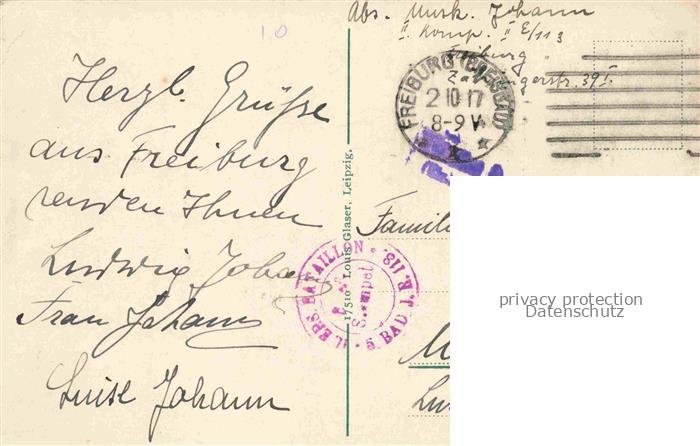 10
Abs. Musk. Johann
II. Komp. II E/113
Freiburg
39 I.
FREIBURG (BREISGAU)
2 10 17
8-9 V
Herzl. Grüsse
aus Freiburg
senden Ihnen
Ludwig Johann
Frau Johann
Luise Johann
17510 Louis Glaser, Leipzig.
II. ERS. BATAILLON
5. BAD. I. R. 113.
Famili
privacy protection
Datenschutz